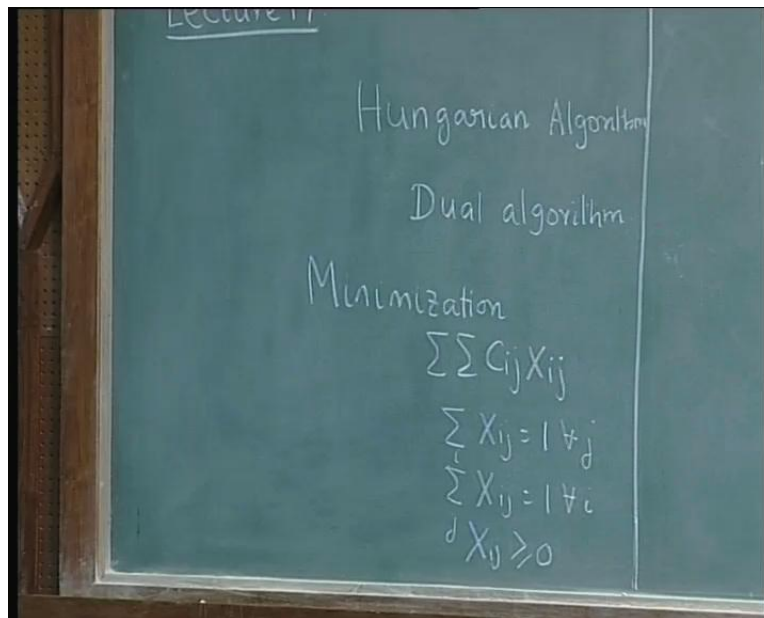 Lecture 17
Hungarian Algorithm
Dual algorithm
Minimization
∑ ∑ Cij Xij
∑i Xij = 1 ∀j
∑j Xij = 1 ∀i
Xij ≥ 0